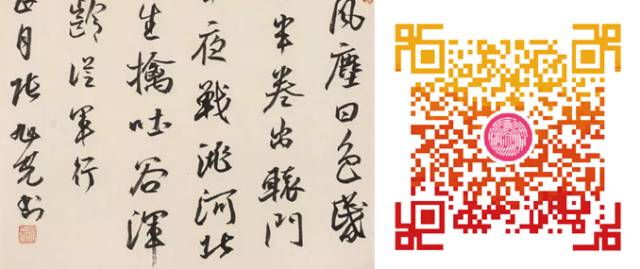 風塵日色昏
半卷出轅門
夜戰洮河北
生擒吐谷渾
齡從軍行
月張旭光書